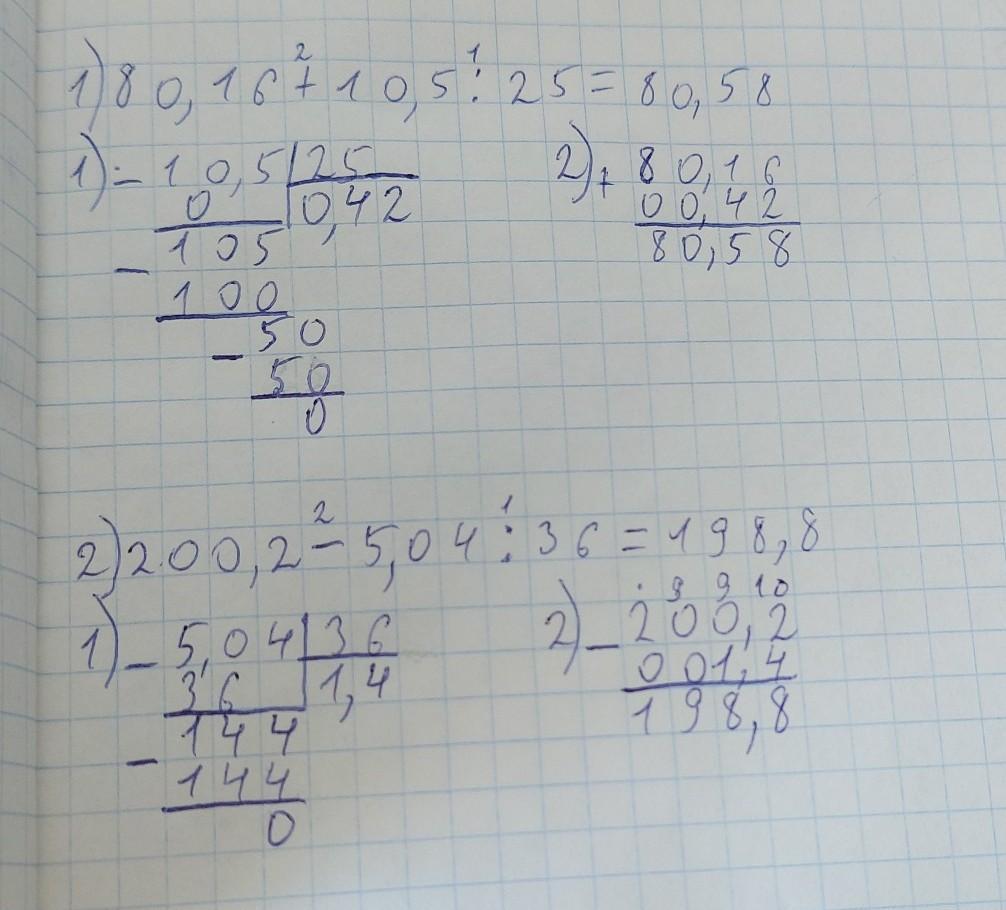 1) 80,16 + 10,5 : 25 = 80,58
2 1
1) - 10,5 | 25
0 | 0,42
- 105
100
- 50
50
0
2) + 80,16
00,42
80,58
2) 200,2 - 5,04 : 36 = 198,8
2 1
1) - 5,04 | 36
36 | 1,4
- 144
144
0
. 9 9 10
2) - 200,2
001,4
198,8